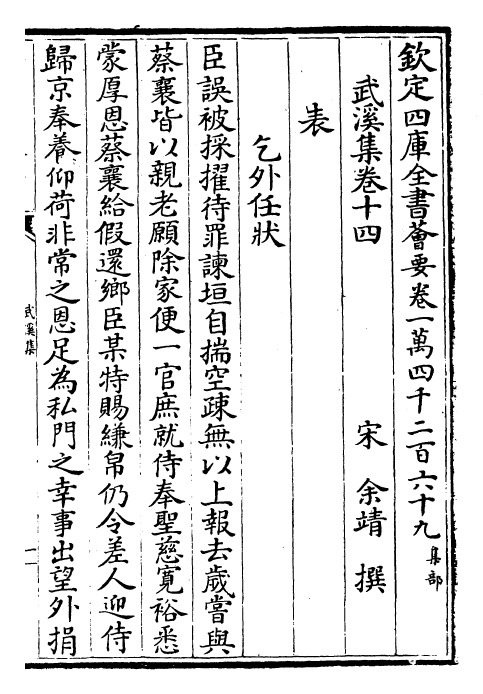 欽定四庫全書薈要卷一萬四千二百六十九集部
武溪集卷十四
宋 余靖 撰
表
乞外任狀
臣誤被採擢待罪諫垣自揣空疎無以上報去歲嘗與
蔡襄皆以親老願除家便一官庶就侍奉聖慈寛裕悉
蒙厚恩蔡襄給假還鄉臣某特賜縑帛仍令差人迎侍
歸京奉養仰荷非常之恩足為私門之幸事出望外捐
武溪集
一